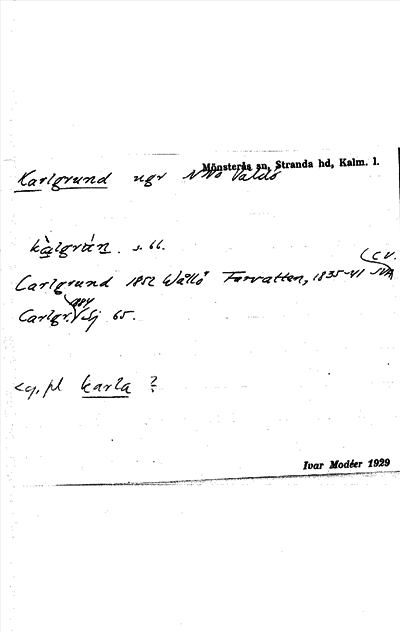 Mönsterås sn, Stranda hd, Kalm. l.
Karlgrund ngr NNO Valdö
kàlgrùn. s. 66.
(C V.
Carlgrund 1852 Wållö Farvatten, 1835-41 SVA
Carlgr. Sj 65.
<g. pl karla ?
Ivar Modéer 1929